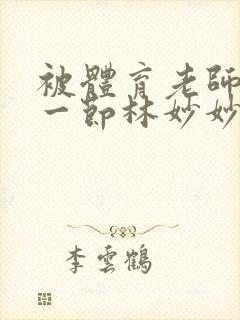 被體育老師
一節林妙妙
李雲鶴